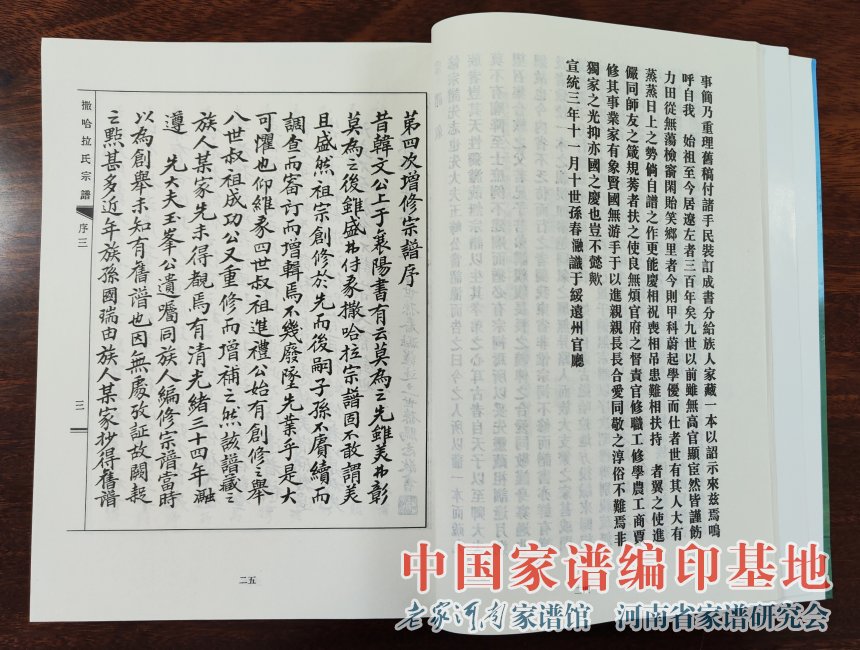 事簡乃重理舊稿付諸手民裝訂成書分給族人家藏一本以詔示來茲焉嗚
呼自我 始祖至今居遼左者三百年矣九世以前雖無高官顯宦然皆謹飭
力田從無蕩檢窬閑貽笑鄉里者今則甲科蔚起學優而仕者世有其人大有
蒸蒸日上之勢倘自譜之作更能慶相祝喪相吊患難相扶持 者翼之使進
儼同師友之箴規莠者扶之使良無煩官府之督責官修職工修學農工商賈
修其事業家有象賢國無游手于以進親親長長合愛同敬之淳俗不難焉非
獨家之光抑亦國之慶也豈不懿歟
宣統三年十一月十世孫春瀜識于綏遠州官廳
撒哈拉氏宗譜
序三
三一
第四次增修宗譜序
昔韓文公上于襄陽書有云莫為之先雖美弗彰
莫為之後雖盛弗傳我撒哈拉宗譜固不敢謂美
且盛然祖宗創修於先而後嗣子孫不賡續而
調查而審訂而增輯焉不幾廢墜先業乎是大
可懼也仰維我四世叔祖進禮公始有創修之舉
八世叔祖成功公又重修而增補之然該譜藏之
族人某家先未得覩焉有清光緒三十四年瀜
遵 先大夫玉峯公遺囑同族人編修宗譜當時
以為創舉未知有舊譜也因無處攷証故闕疑
之點甚多近年族孫國瑞由族人某家抄得舊譜
二五
中国家谱编印基地
老家河南家谱馆 河南省家谱研究会